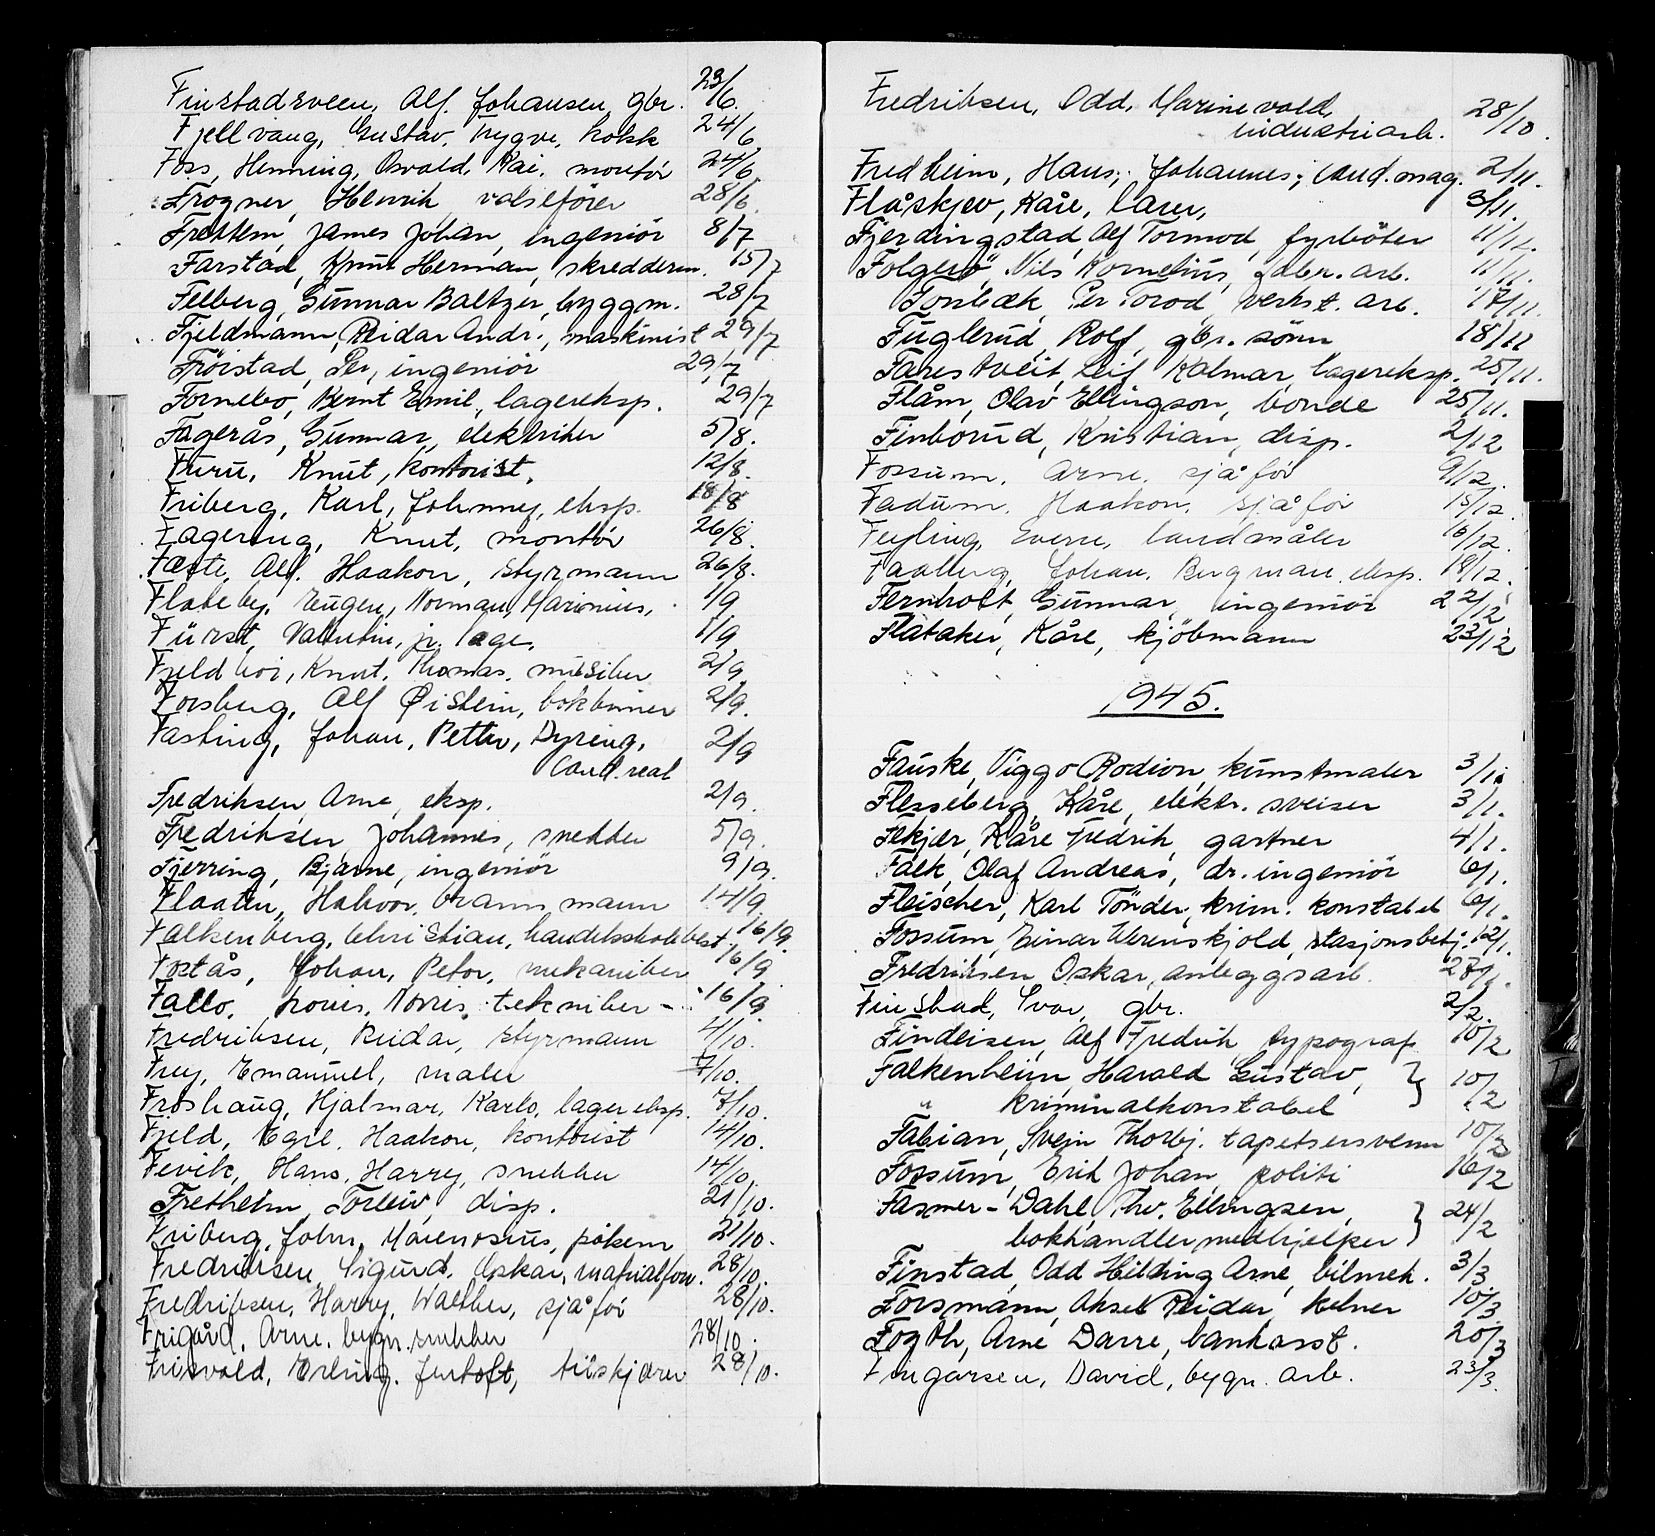 Finstadsveen, Alf. Johansen, gbr. 23/6.
Fjellvang, Gustav, Trygve, kokk 24/6
Foss, Henning, Osvald, Kai, montör 24/6
Frogner, Henrik, valsefører 28/6.
Frettem, James Johan, ingeniör 8/7
Farstad, Knut Herman, skredderm. 15/7
Felberg, Gunnar Baltzer, byggm. 28/7
Fjeldmann, Reidar Andr., maskinist 29/7
Fröistad, Per, ingeniör 29/7
Fornebo, Bernt Emil, lagereksp. 29/7
Fagerås, Gunnar, elektriker 5/8.
Furu, Knut, kontorist, 12/8.
Friberg, Karl, Johnny, eksp. 18/8
Fagereng, Knut, montör 26/8.
Fæste, Alf. Haakon, styrmann 26/8.
Flateby, Eugen, Norman, Marinius, 1/9
Fürst, Valentin, jr. lege. 1/9
Fjeldhoi, Knut, Thomas, musiker 2/9
Forsberg, Alf Øistein, bokbinner 2/9.
Fasting, Johan, Petter, Dyring,
Cand. real 2/9
Fredriksen, Arne, eksp. 2/9.
Fredriksen, Johannes, snekker 5/9.
Fjerring, Bjarne, ingeniör 9/9.
Flaaten, Halvor, brannmann 14/9.
Falkenberg, Christian, handelsskolebest. 16/9.
Fostås, Johan, Peter, mekaniker 16/9
Fallo, Louis, Norris, tekniker - 16/9.
Fredriksen, Reidar, styrmann 4/10.
Frey, Emanuel, maler 7/10.
Froshaug, Hjalmar, Karlo, lagereksp. 7/10.
Fjeld, Egil, Haakon, kontorist 14/10.
Fevik, Hans, Harry, snekker 14/10.
Fretheim, Torleiv, disp. 21/10.
Friberg, John, Marenosius, pökem 21/10.
Fredriksen, Sigurd, Oskar, materialforv. 28/10.
Fredriksen, Harry, Walther, sjåför 28/10.
Frigård, Arne, bygn. snekker 28/10.
Frisvold, Erling, Jentoft, tilskjærer 28/10.
Fredriksen, Odd, Marinevold,
industriarb. 28/10.
Fredheim, Hans, Johannes, cand. mag. 2/11.
Flåskjer, Kåre, lærer, 3/11.
Fjerdingstad, Alf Tormod, fyrböter 11/12.
Folgerö, Nils Kornelius, fabr. arb. 11/11.
Fonbæk, Per Torod, verkst. arb. 17/11.
Fuglerud, Rolf, gbr. sönn 18/11
Farestveit, Leif Kalmar, lagereksp. 25/11.
Flåm, Olav Ellingson, bonde 25/11.
Finborud, Kristian, disp. 2/12
Fossum, Arne, sjåför 9/12.
Fadum, Haakon, sjåför 15/12.
Feyling, Sverre, landmåler 16/12.
Faaberg, Johan, Bergman, eksp. 18/12.
Fernholt, Gunnar, ingeniör 22/12.
Flataker, Kåre, kjöbmann 23/12
1945.
Fauske, Viggo Rodion, kunstmaler 3/1.
Flesseberg, Kåre, elektr. sveiser 3/1.
Flekjær, Kåre Fredrik, gartner 4/1.
Falk, Olaf Andreas, dr. ingeniör 6/1.
Fleischer, Karl Tönder, krim. konstabel 6/1.
Fossum, Einar Werenskjold, stasjonsbetj. 12/1.
Fredriksen Oskar, anleggsarb. 27/1.
Finstad, Ivar, gbr. 2/2.
Findeisen, Alf Fredrik, typograf 10/2
Falkenheim, Harald Gustav,
" kriminalkonstabel } 10/2
Fabian, Svein Thorbj. tapetsersvenn 10/2
Fossum, Erik Johan, politi 16/2
Fasmer-Dahl, Thv. Ellingsen,
bokhandlermedhjelper } 24/2
Finstad, Odd Hilding Arne, bilmek. 3/3
Forsmann, Aksel Reidar, kelner 10/3.
Fogth, Arne Darre, bankasst. 20/3
Fingarsen, David, bygn. arb. 23/3.